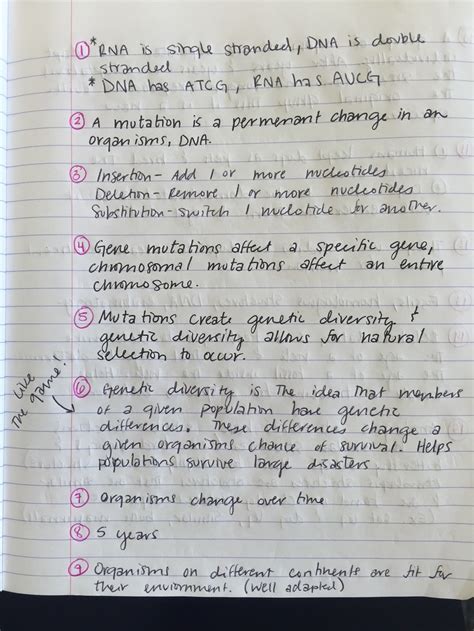 ① * RNA is single stranded, DNA is double
stranded
* DNA has ATCG, RNA has AUCG
② A mutation is a permenant change in an
organisms, DNA.
③ Insertion - Add 1 or more nucleotides
Deletion - Remove 1 or more nucleotides
Substitution - switch 1 nuclotide for another.
④ Gene mutations affect a specific gene,
chromosomal mutations affect an entire
chromosome.
⑤ Mutations create genetic diversity &
genetic diversity allows for natural
selection to occur.
Like
The game!
⑥ Genetic diversity is The idea That members
of a given population have genetic
differences. These differences change a
given organisms chance of survival. Helps
populations survive large disasters
⑦ Organisms change over time
⑧ 5 years
⑨ Organisms on different continents are fit for
their enviornment. (Well adapted)